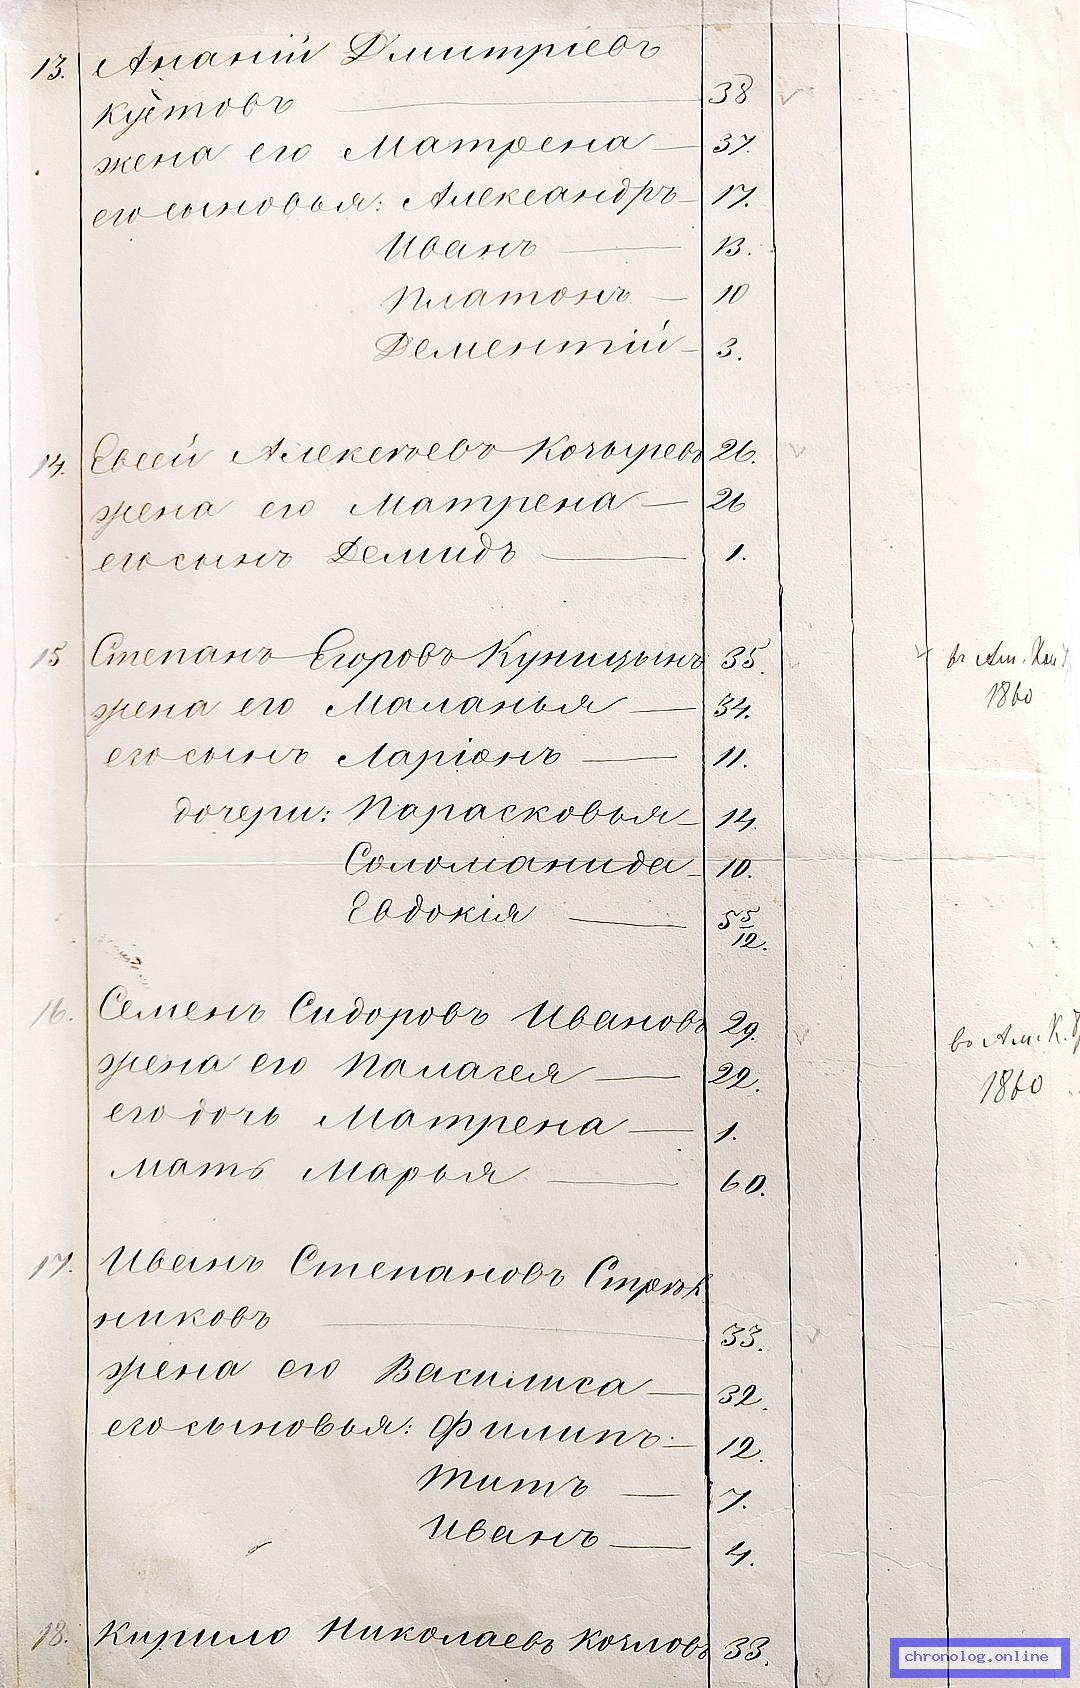 13. Ананій Дмитріевъ
Кустовъ 38
жена его Матрена 37.
его сыновья: Александръ 17.
Иванъ 13.
Платонъ 10
Дементій 3.
14. Евсей Алексѣевъ Козыревъ 26.
жена его Матрена 26
его сынъ Демидъ 1.
15 Степанъ Егоровъ Куницынъ 35.
въ Ам.
жена его Маланья 34.
1860
его сынъ Ларіонъ 11.
дочери: Парасковья 14.
Соломанида 10.
Евдокія 5 5/12.
16. Семенъ Сидоровъ Ивановъ 29.
въ Ам. К.
жена его Палагея 22.
1860
его дочь Матрена 1.
мать Марья 60.
17. Иванъ Степановъ Стрѣль
никовъ 33.
жена его Василиса 32.
его сыновья: Филипъ 12.
Титъ 7.
Иванъ 4.
18. Кирило Николаевъ Козловъ 33.
chronolog.online